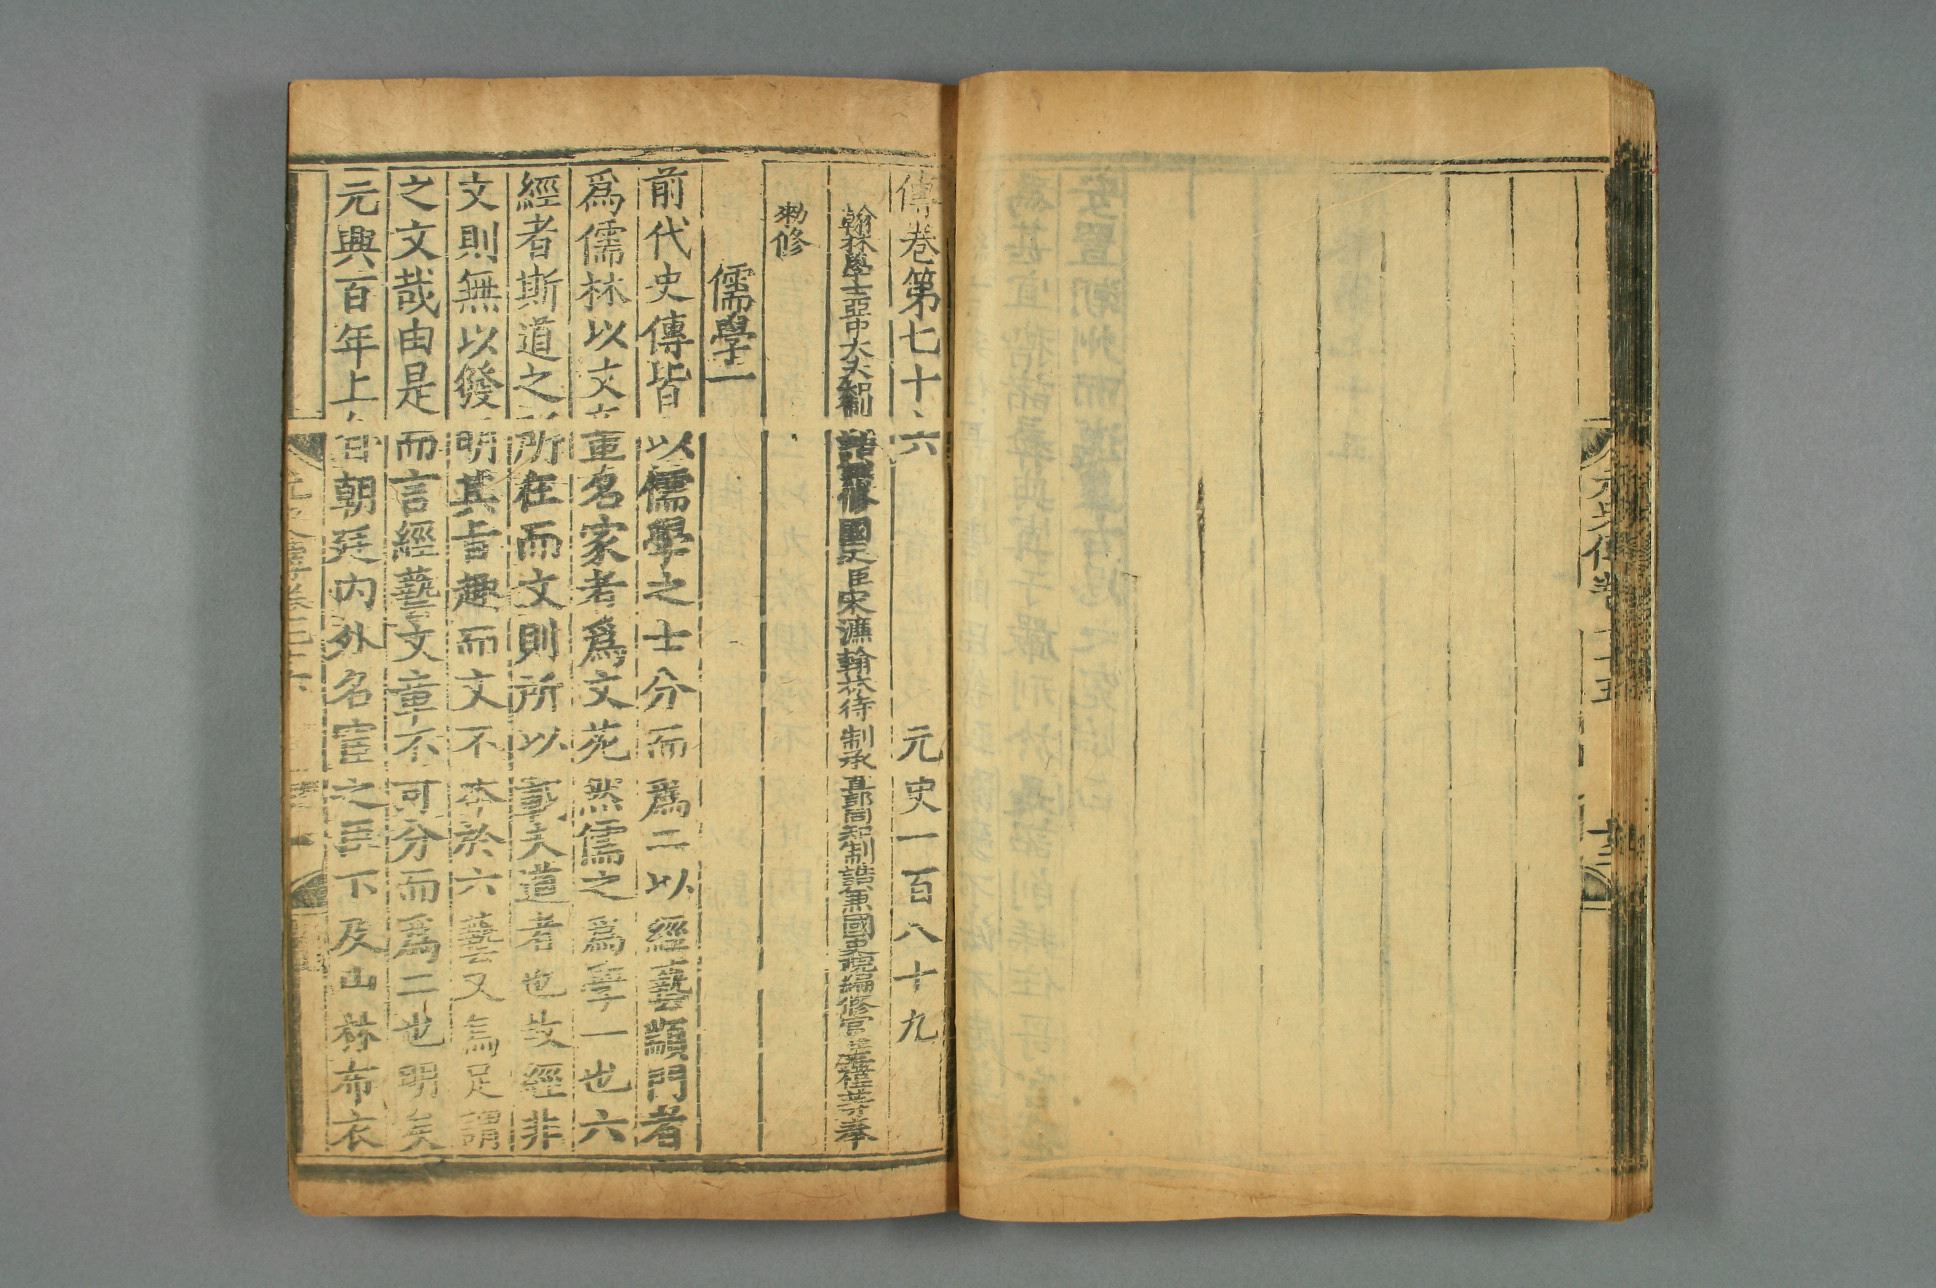 傳卷第七十六　元史一百八十九
翰林學士亞中大夫知制誥兼修國史臣宋濂翰林待制承直郎同知制誥兼國史院編修官臣王禕等奉
勑修
儒學一
前代史傳皆以儒學之士分而爲二以經藝顓門者
爲儒林以文章名家者爲文苑然儒之爲學一也六
經者斯道之所在而文則所以載夫道者也故經非
文則無以發明其旨趣而文不本於六藝又烏足謂
之文哉由是而言經藝文章不可分而爲二也明矣
元興百年上自朝廷內外名宦之臣下及山林布衣
元史傳卷七十六
元史傳卷七十五